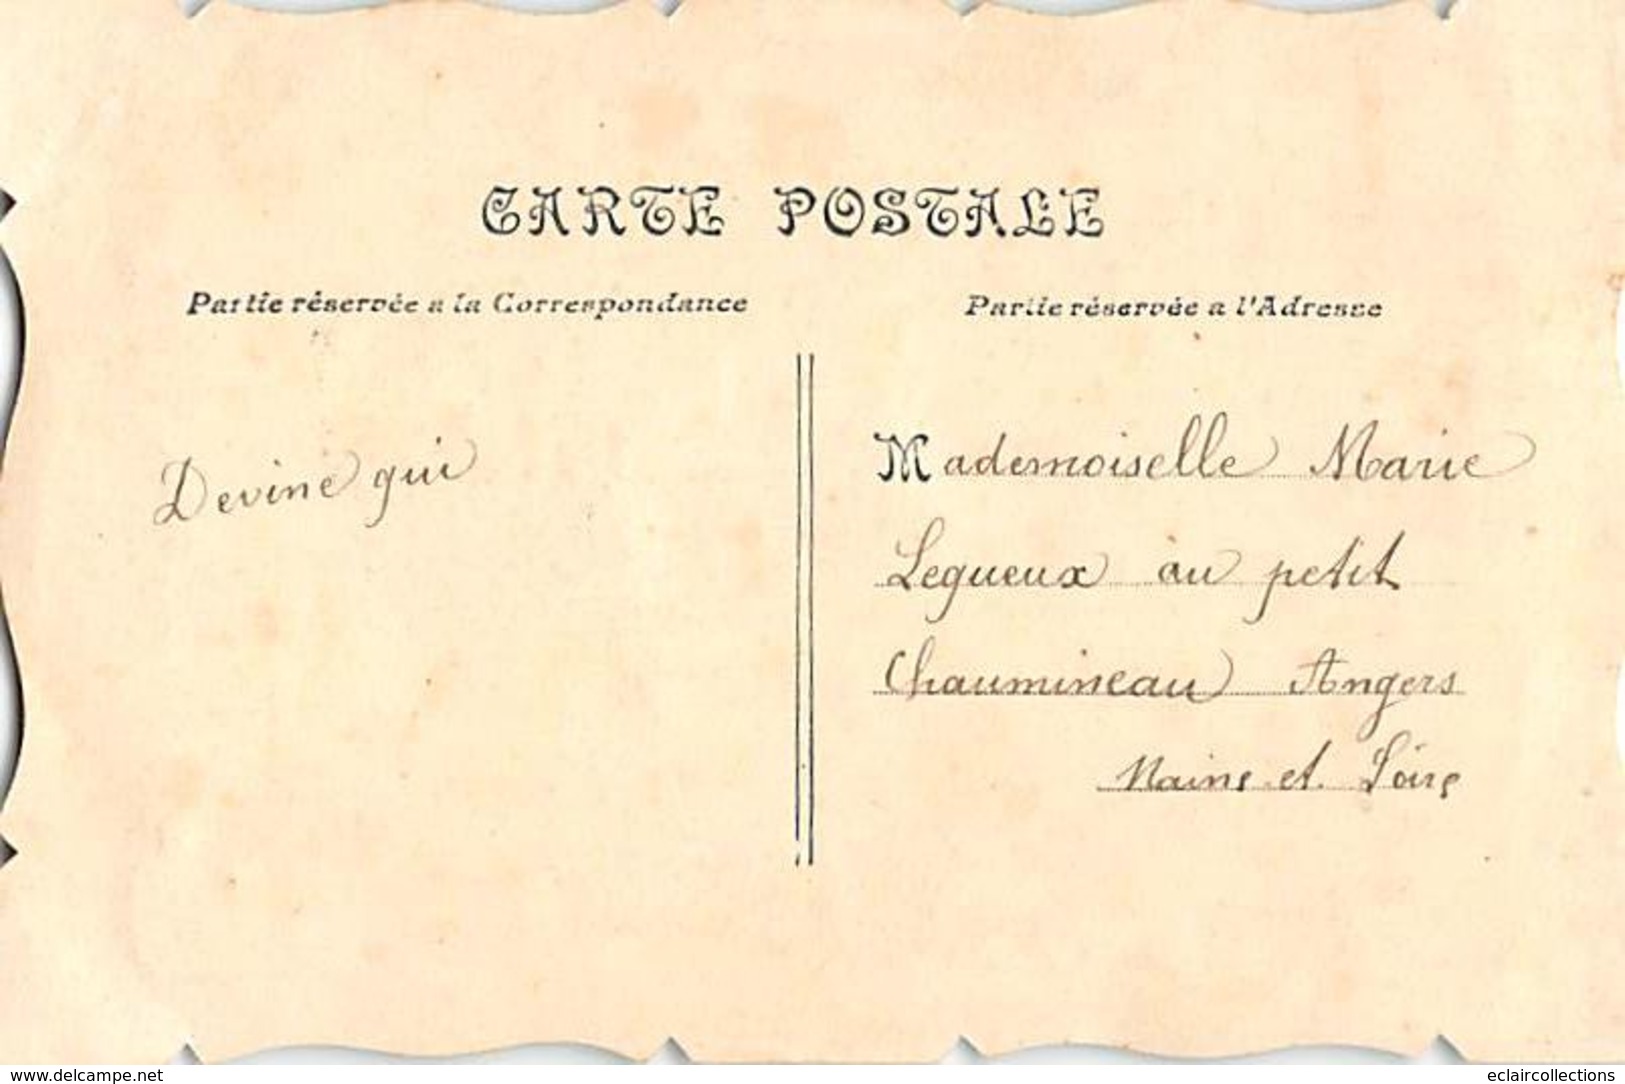 CARTE POSTALE
Partie réservée a la Correspondance
Partie réservée a l'Adresse
Devine qui
Mademoiselle Marie
Legueux au petit
Chaumineau Angers
Maine et Loire
www.delcampe.net
eclaircollections